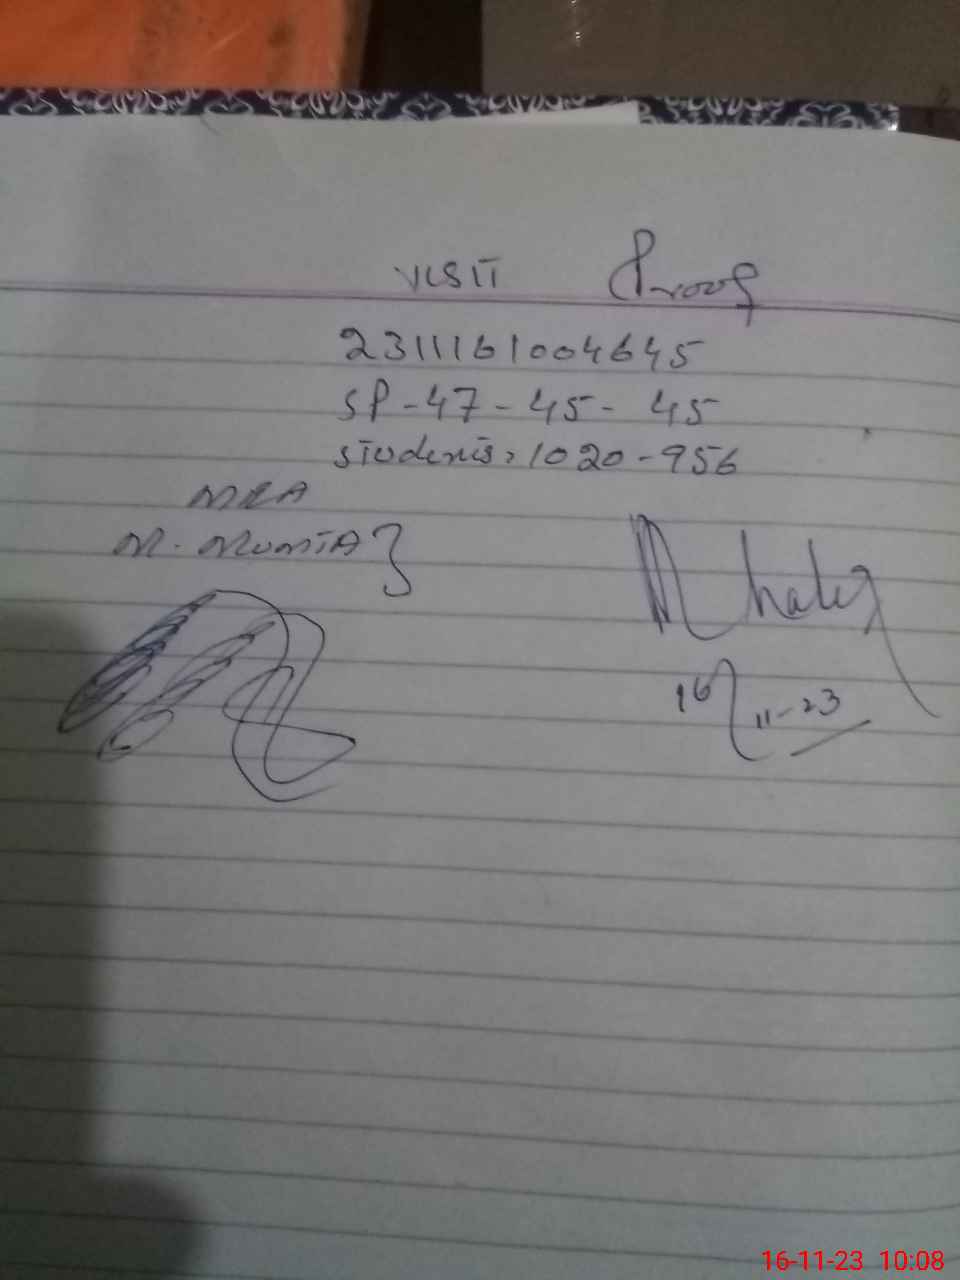 VISIT Proof
2311161004645
SP-47-45-45
students: 1020-956
MEA
M. MUMTAZ
16/11-23
16-11-23 10:08